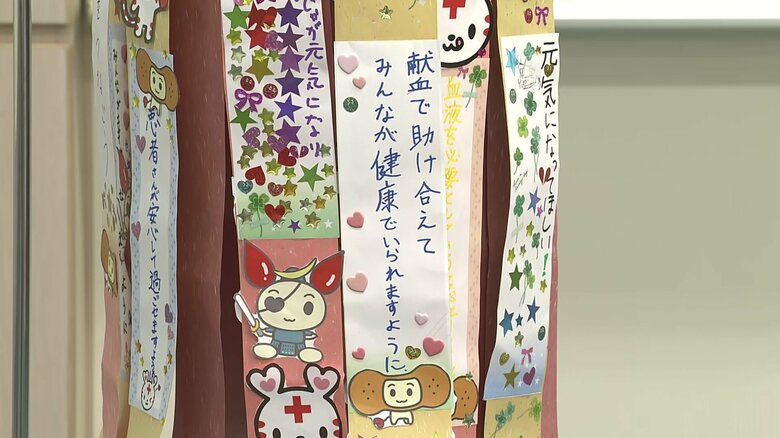 患者さんが安心して過ごせます
なが元気になり
献血で助け合えて
みんなが健康でいられますように。
血液を必要として
元気になってほしい!